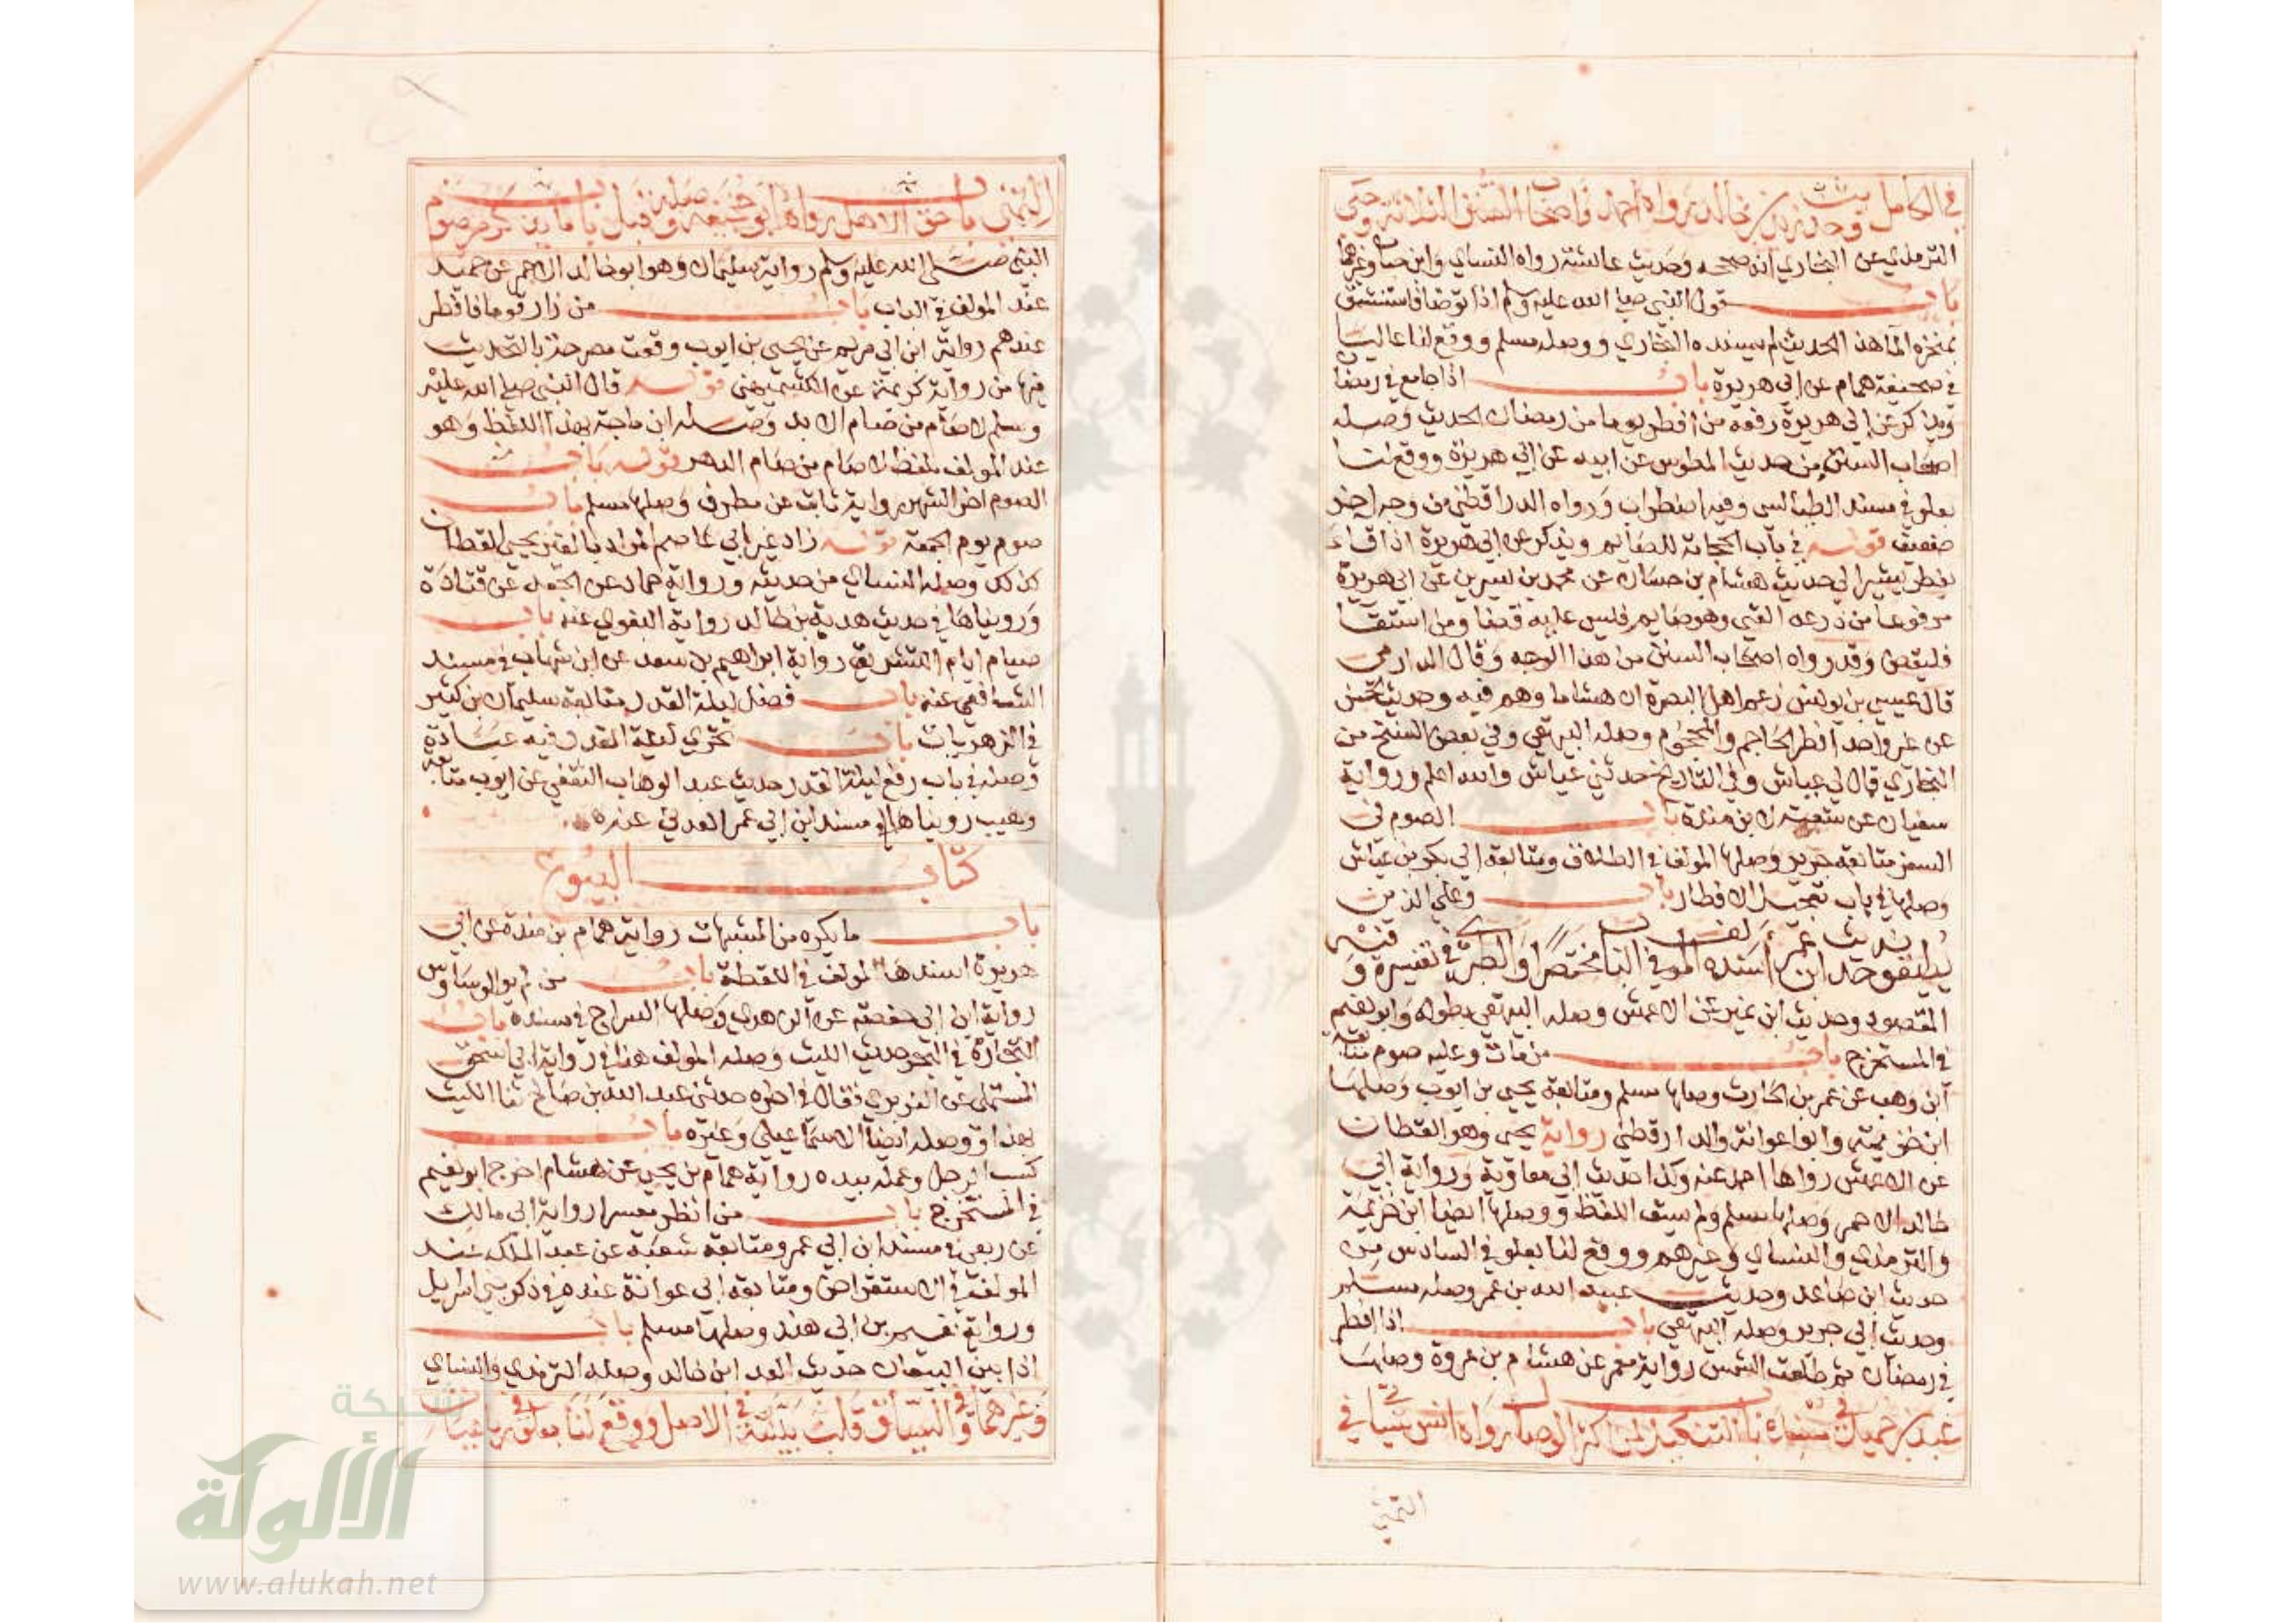 في الكامل وحديث زيد بن خالد رواه احمد واصحاب السنن الثلاثة وحكى
الترمذي عن البخاري انه صححه وحديث عائشة رواه النسائي وابن حبان وغيرهما
باب قول النبي صلى الله عليه وسلم اذا توضا فاستنشق
بمنخره الما هذا الحديث لم يسنده البخاري ووصله مسلم ووقع لنا عاليا
في صحيفة همام عن ابي هريرة باب اذا جامع في رمضان
ويذكر عن ابي هريرة رفعه من افطر يوما من رمضان الحديث وصله
اصحاب السنن من حديث المطوس عن ابيه عن ابي هريرة ووقع لنا
بعلو في مسند الطيالسي وفيه اضطراب ورواه الدارقطني من وجه اخر
ضعيف قوله في باب الحجامة للصايم ويذكر عن ابي هريرة اذا قاء
يفطر يشير الى حديث هشام بن حسان عن محمد بن سيرين عن ابي هريرة
مرفوعا من ذرعه القي وهو صايم فليس عليه قضا ومن استقا
فليقض وقد رواه اصحاب السنن من هذا الوجه وقال الدارمي
قال عيسى بن يونس زعم اهل البصرة ان هشاما وهم فيه وحديث الحسن
عن غير واحد افطر الحاجم والمحجوم وصله البيهقي وفي بعض النسخ من
البخاري قال لي عياش وفي التاريخ حدثني عياش والله اعلم ورواية
سفيان عن شعبة لابن مندة باب الصوم في
السفر متابعة جرير وصلها المولف في الطلاق ومتابعة ابي بكر بن عياش
وصلها في باب تعجيل الافطار باب وعلى الذين
يطيقونه حديث ابن عمر اسنده المولف في الباب مختصرا والطبري في تفسيره وفيه
المقصود وحديث ابن نمير عن الاعمش وصله البيهقي بطوله وابو نعيم
في المستخرج باب من مات وعليه صوم متابعة
ابن وهب عن عمر بن الحارث وصلها مسلم ومتابعة يحيى بن ايوب وصلها
ابن خزيمة وابوا عوانة والدارقطني رواية يحيى وهو القطان
عن الاعمش رواها احمد عنه وكذا حديث ابي معاوية ورواية ابي
خالد الاحمر وصلها مسلم ولم يسق اللفظ ووصلها ايضا ابن خزيمة
والترمذي والنسائي وغيرهم ووقع لنا بعلو في السادس من
حديث ابن صاعد وحديث عبيد الله بن عمر وصله مسلم
وحديث ابي جرير وصله البيهقي باب اذا افطر
في رمضان ثم طلعت الشمس رواية معمر عن هشام بن عروة وصلها
عبد بن حميد في مسنده باب التنكيل لمن اكثر الوصال رواه انس سياتي في
التمني
التمني باب حق الاهل رواها ابو جحيفة وصله قبل باب ما يذكر من صوم
النبي صلى الله عليه وسلم رواية سليمان وهو ابو خالد الاحمر عن حميد
عند المولف في الباب باب من زار قوما فافطر
عندهم رواية ابن ابي مريم عن يحيى بن ايوب وقعت مصرحة بالتحديث
فيها من رواية كريمة عن الكشميهني قوله قال النبي صلى الله عليه
وسلم لا صام من صام الابد وصله ابن ماجة بهذا اللفظ وهو
عند المولف بلفظ لا صام من صام الدهر قوله باب
الصوم اخر الشهر رواية ثابت عن مطرف وصلها مسلم باب
صوم يوم الجمعة قوله زاد غير ابي عاصم المراد بالغير يحيى القطان
كذلك وصله النسائي من حديثه ورواية حماد عن الجعد عن قتادة
ورويناها في حديث هدبة بن خالد رواية البغوي عنه باب
صيام ايام التشريق رواية ابراهيم بن سعد عن ابن شهاب في مسند
الشافعي عنه باب فضل ليلة القدر متابعة سليمان بن كثير
في الزهريات باب تحري ليلة القدر فيه عبادة
وصله في باب رفع ليلة القدر حديث عبد الوهاب الثقفي عن ايوب متابعة
وهيب رويناها في مسند ابن ابي عمر العدني عنه
كتاب البيوع
باب ما يكره من الشبهات رواية همام بن منبه عن ابي
هريرة اسندها المولف في اللقطة باب من لم ير الوساوس
رواية ابن ابي حفصة عن الزهري وصلها السراج في مسنده باب
التجارة في البحر حديث الليث وصله المولف هنا في رواية ابي اسحق
المستملي عن الفربري فقال في اخره حدثني عبد الله بن صالح ثنا الليث
بهذا ووصله ايضا الاسماعيلي وغيره باب
كسب الرجل وعمله بيده رواية همام بن يحيى عن هشام اخرج ابو نعيم
في المستخرج باب من انظر معسرا رواية ابي مالك
عن ربعي في مسند ابن ابي عمر ومتابعة شعبة عن عبد الملك عند
المولف في الاستقراض ومتابعة ابي عوانة عنده في ذكر بني اسرايل
ورواية نعيم بن ابي هند وصلها مسلم باب
اذا بين البيعان حديث العدا ابن خالد وصله الترمذي والنسائي
وغيرهما وفي البيان قلت بينته في الاصل ووقع لنا بعلو في
شبكة
الألوكة
www.alukah.net